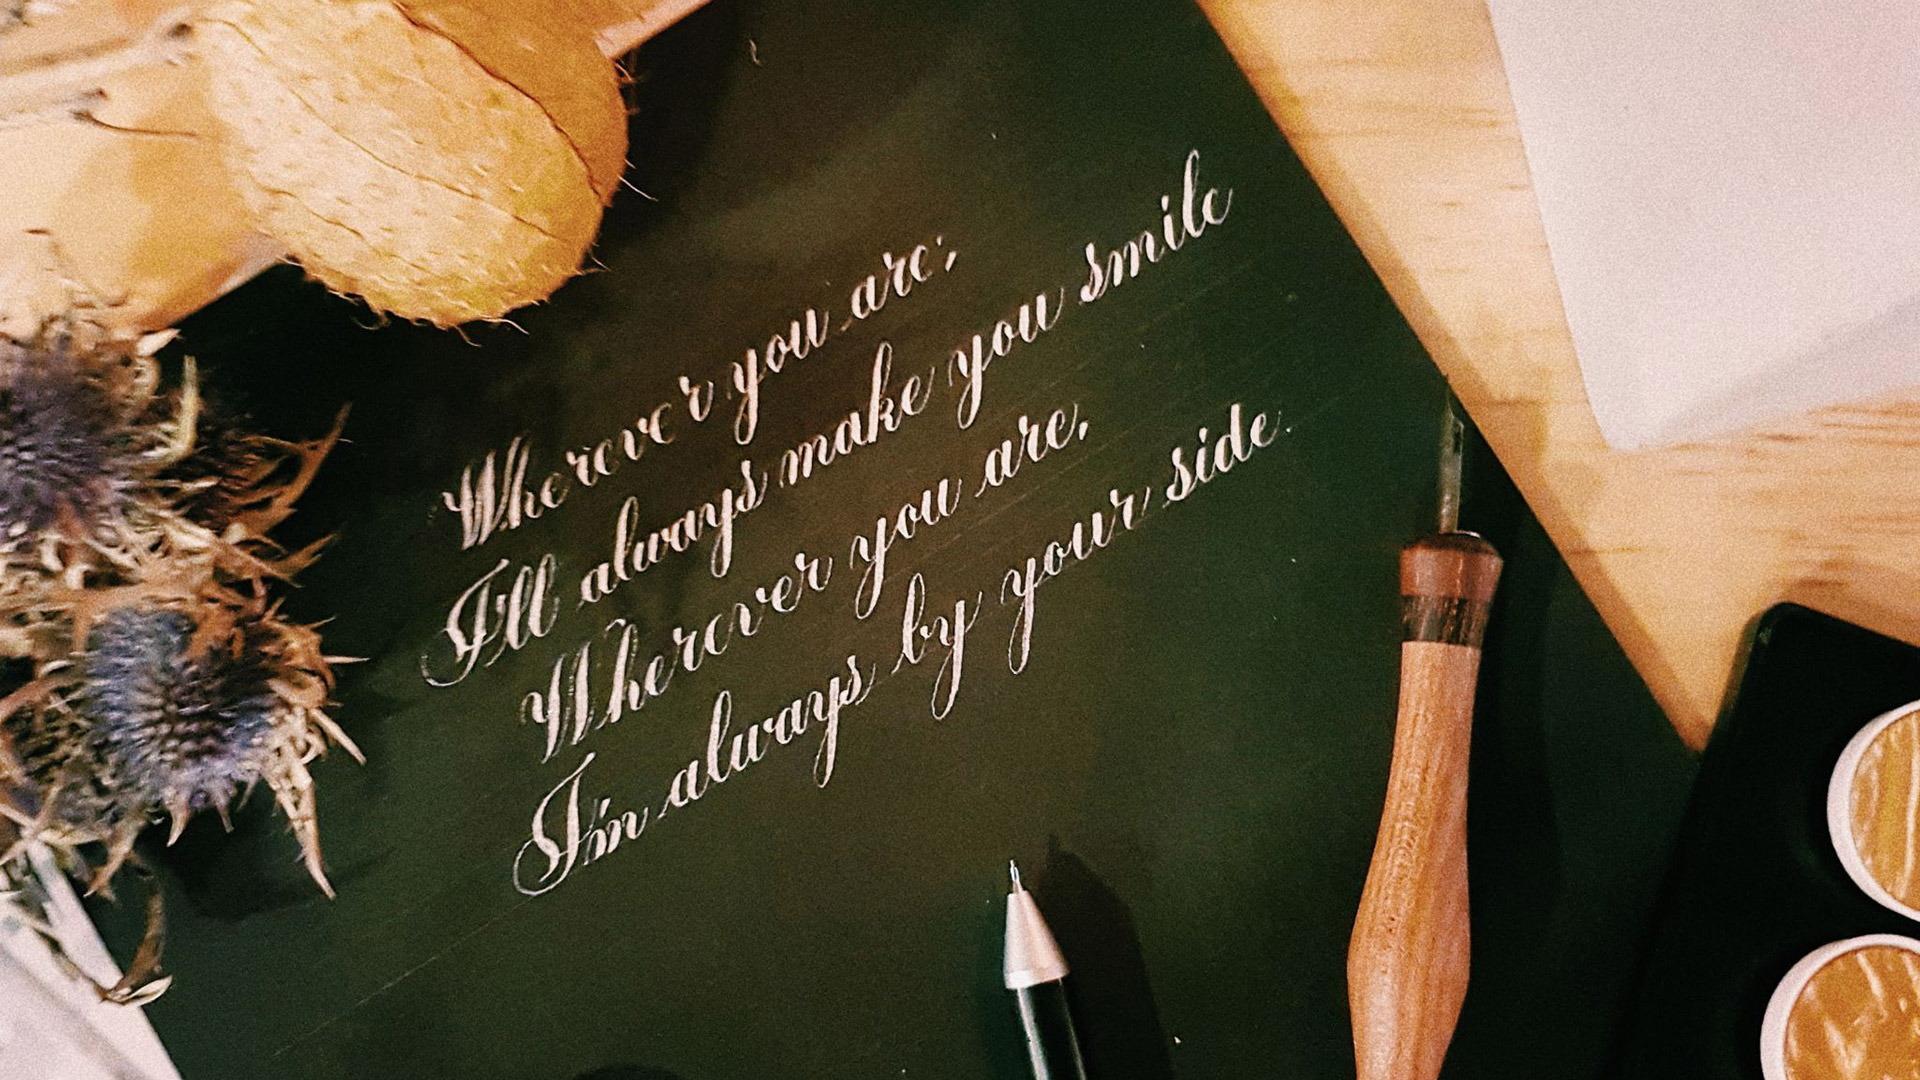 Wherever you are;
I'll always make you smile
Wherever you are,
I'm always by your side.